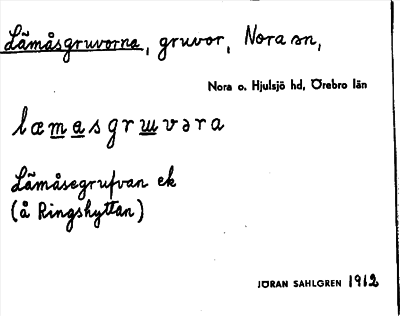 Lãmåsgruvorna, gruvor, Nora sn,
Nora o. Hjulsjö hd, Örebro län
læmasgruvəra
Lãmåsegrufvan ek
(å Ringshyttan)
JÖRAN SAHLGREN 1912